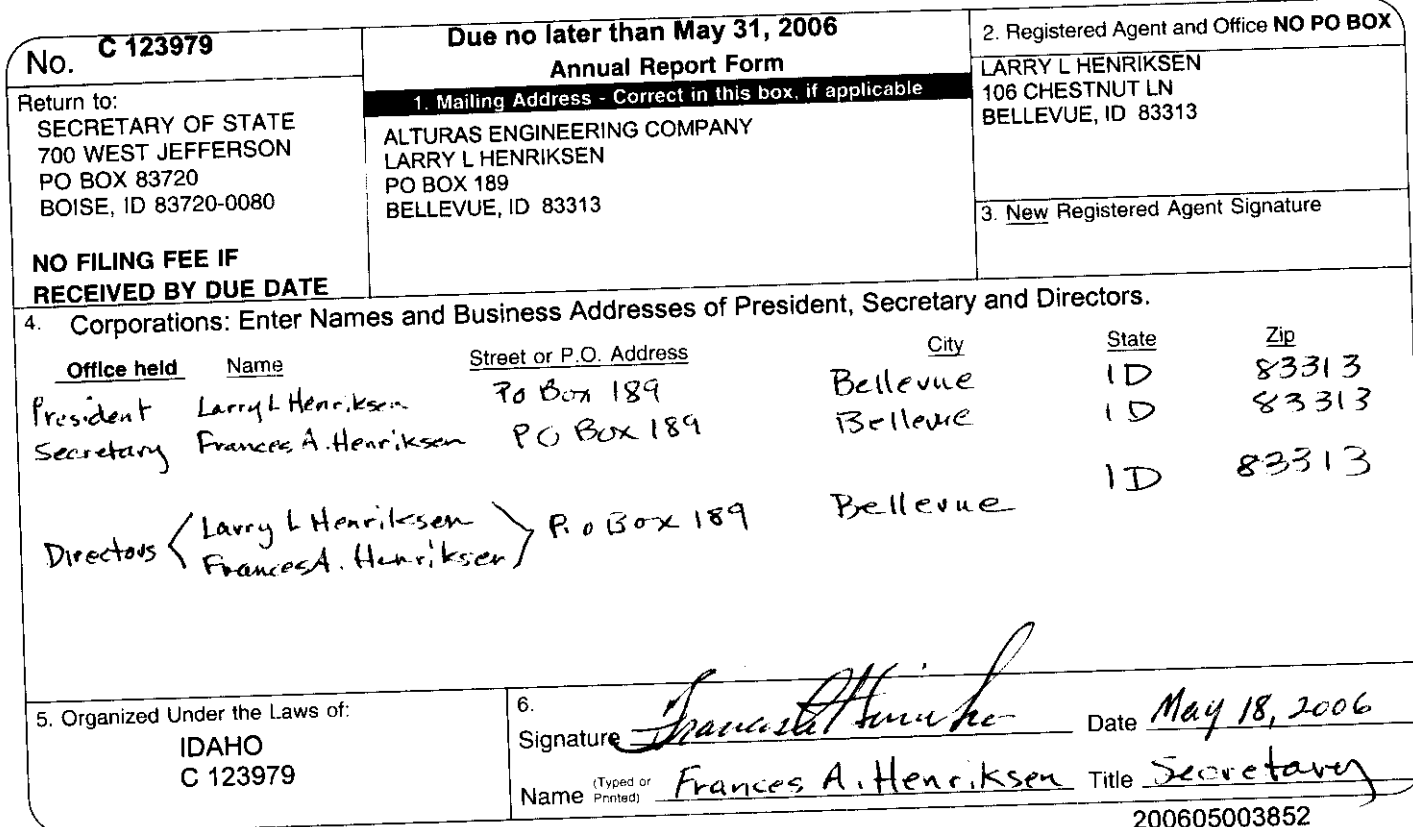 No. C 123979
Return to:
SECRETARY OF STATE
700 WEST JEFFERSON
PO BOX 83720
BOISE, ID 83720-0080
NO FILING FEE IF
RECEIVED BY DUE DATE
Due no later than May 31, 2006
Annual Report Form
1. Mailing Address - Correct in this box, if applicable
ALTURAS ENGINEERING COMPANY
LARRY L HENRIKSEN
PO BOX 189
BELLEVUE, ID 83313
2. Registered Agent and Office NO PO BOX
LARRY L HENRIKSEN
106 CHESTNUT LN
BELLEVUE, ID 83313
3. New Registered Agent Signature
4. Corporations: Enter Names and Business Addresses of President, Secretary and Directors.
Office held Name Street or P.O. Address City State Zip
President Larry L Henriksen Po Box 189 Bellevue ID 83313
Secretary Frances A. Henriksen PO Box 189 Bellevue ID 83313
Directors Larry L Henriksen P.o Box 189 Bellevue ID 83313
Frances A. Henriksen
5. Organized Under the Laws of:
IDAHO
C 123979
6.
Signature Date May 18, 2006
Name (Typed or Printed) Frances A. Henriksen Title Secretary
200605003852